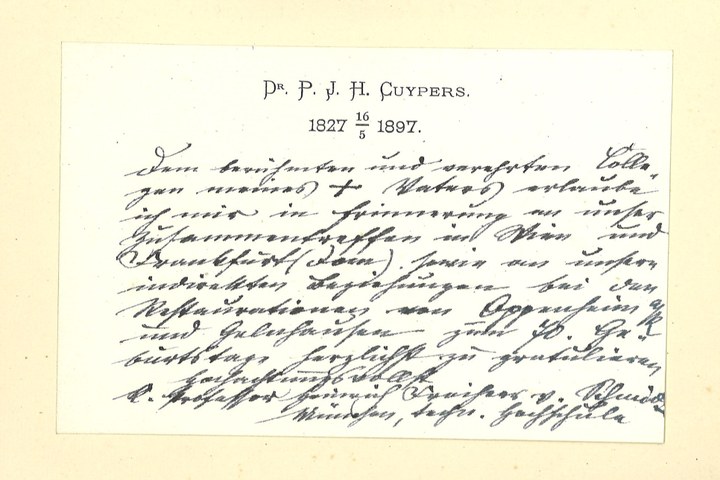 Dr. P. J. H. Cuypers.
1827 16/5 1897.
Dem berühmten und verehrten Colle-
gen meines + Vaters erlaube
ich mir in Erinnerung an unser
Zusammentreffen in Wien und
Frankfurt (Dom) sowie an unsere
indirekten Beziehungen bei den
Restaurationen von Oppenheim a/R
und Gelnhausen zum 70. Ge-
burtstage herzlichst zu gratulieren
Hochachtungsvollst
k. Professor Heinrich Freiherr v. Schmidt
München, techn. Hochschule